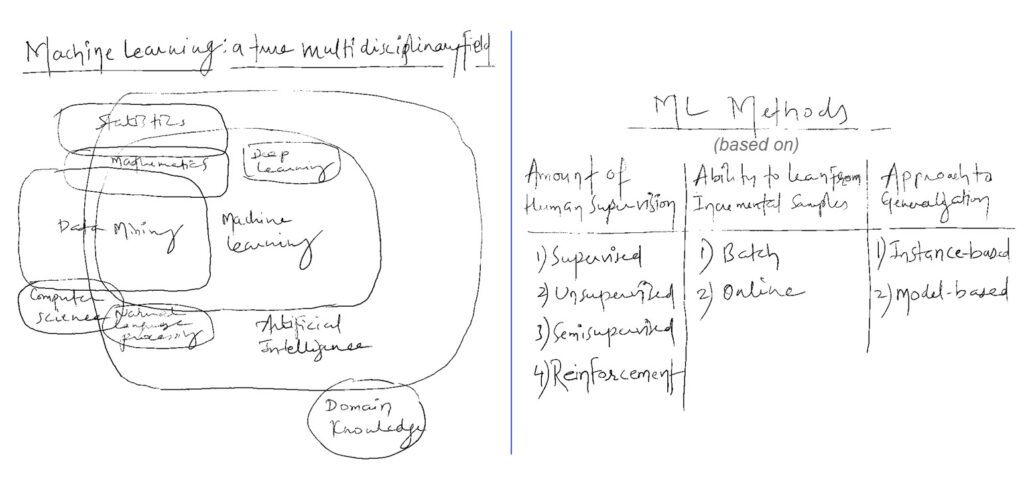 Machine Learning: a true multidisciplinary field
Statistics
Mathematics
Deep
Learning
Data Mining
Machine
Learning
Computer
Science
Natural
Language
Processing
Artificial
Intelligence
Domain
Knowledge
ML Methods
(based on)
Amount of
Human Supervision
1) Supervised
2) Unsupervised
3) Semisupervised
4) Reinforcement
Ability to Learn from
Incremental Samples
1) Batch
2) Online
Approach to
Generalization
1) Instance-based
2) Model-based